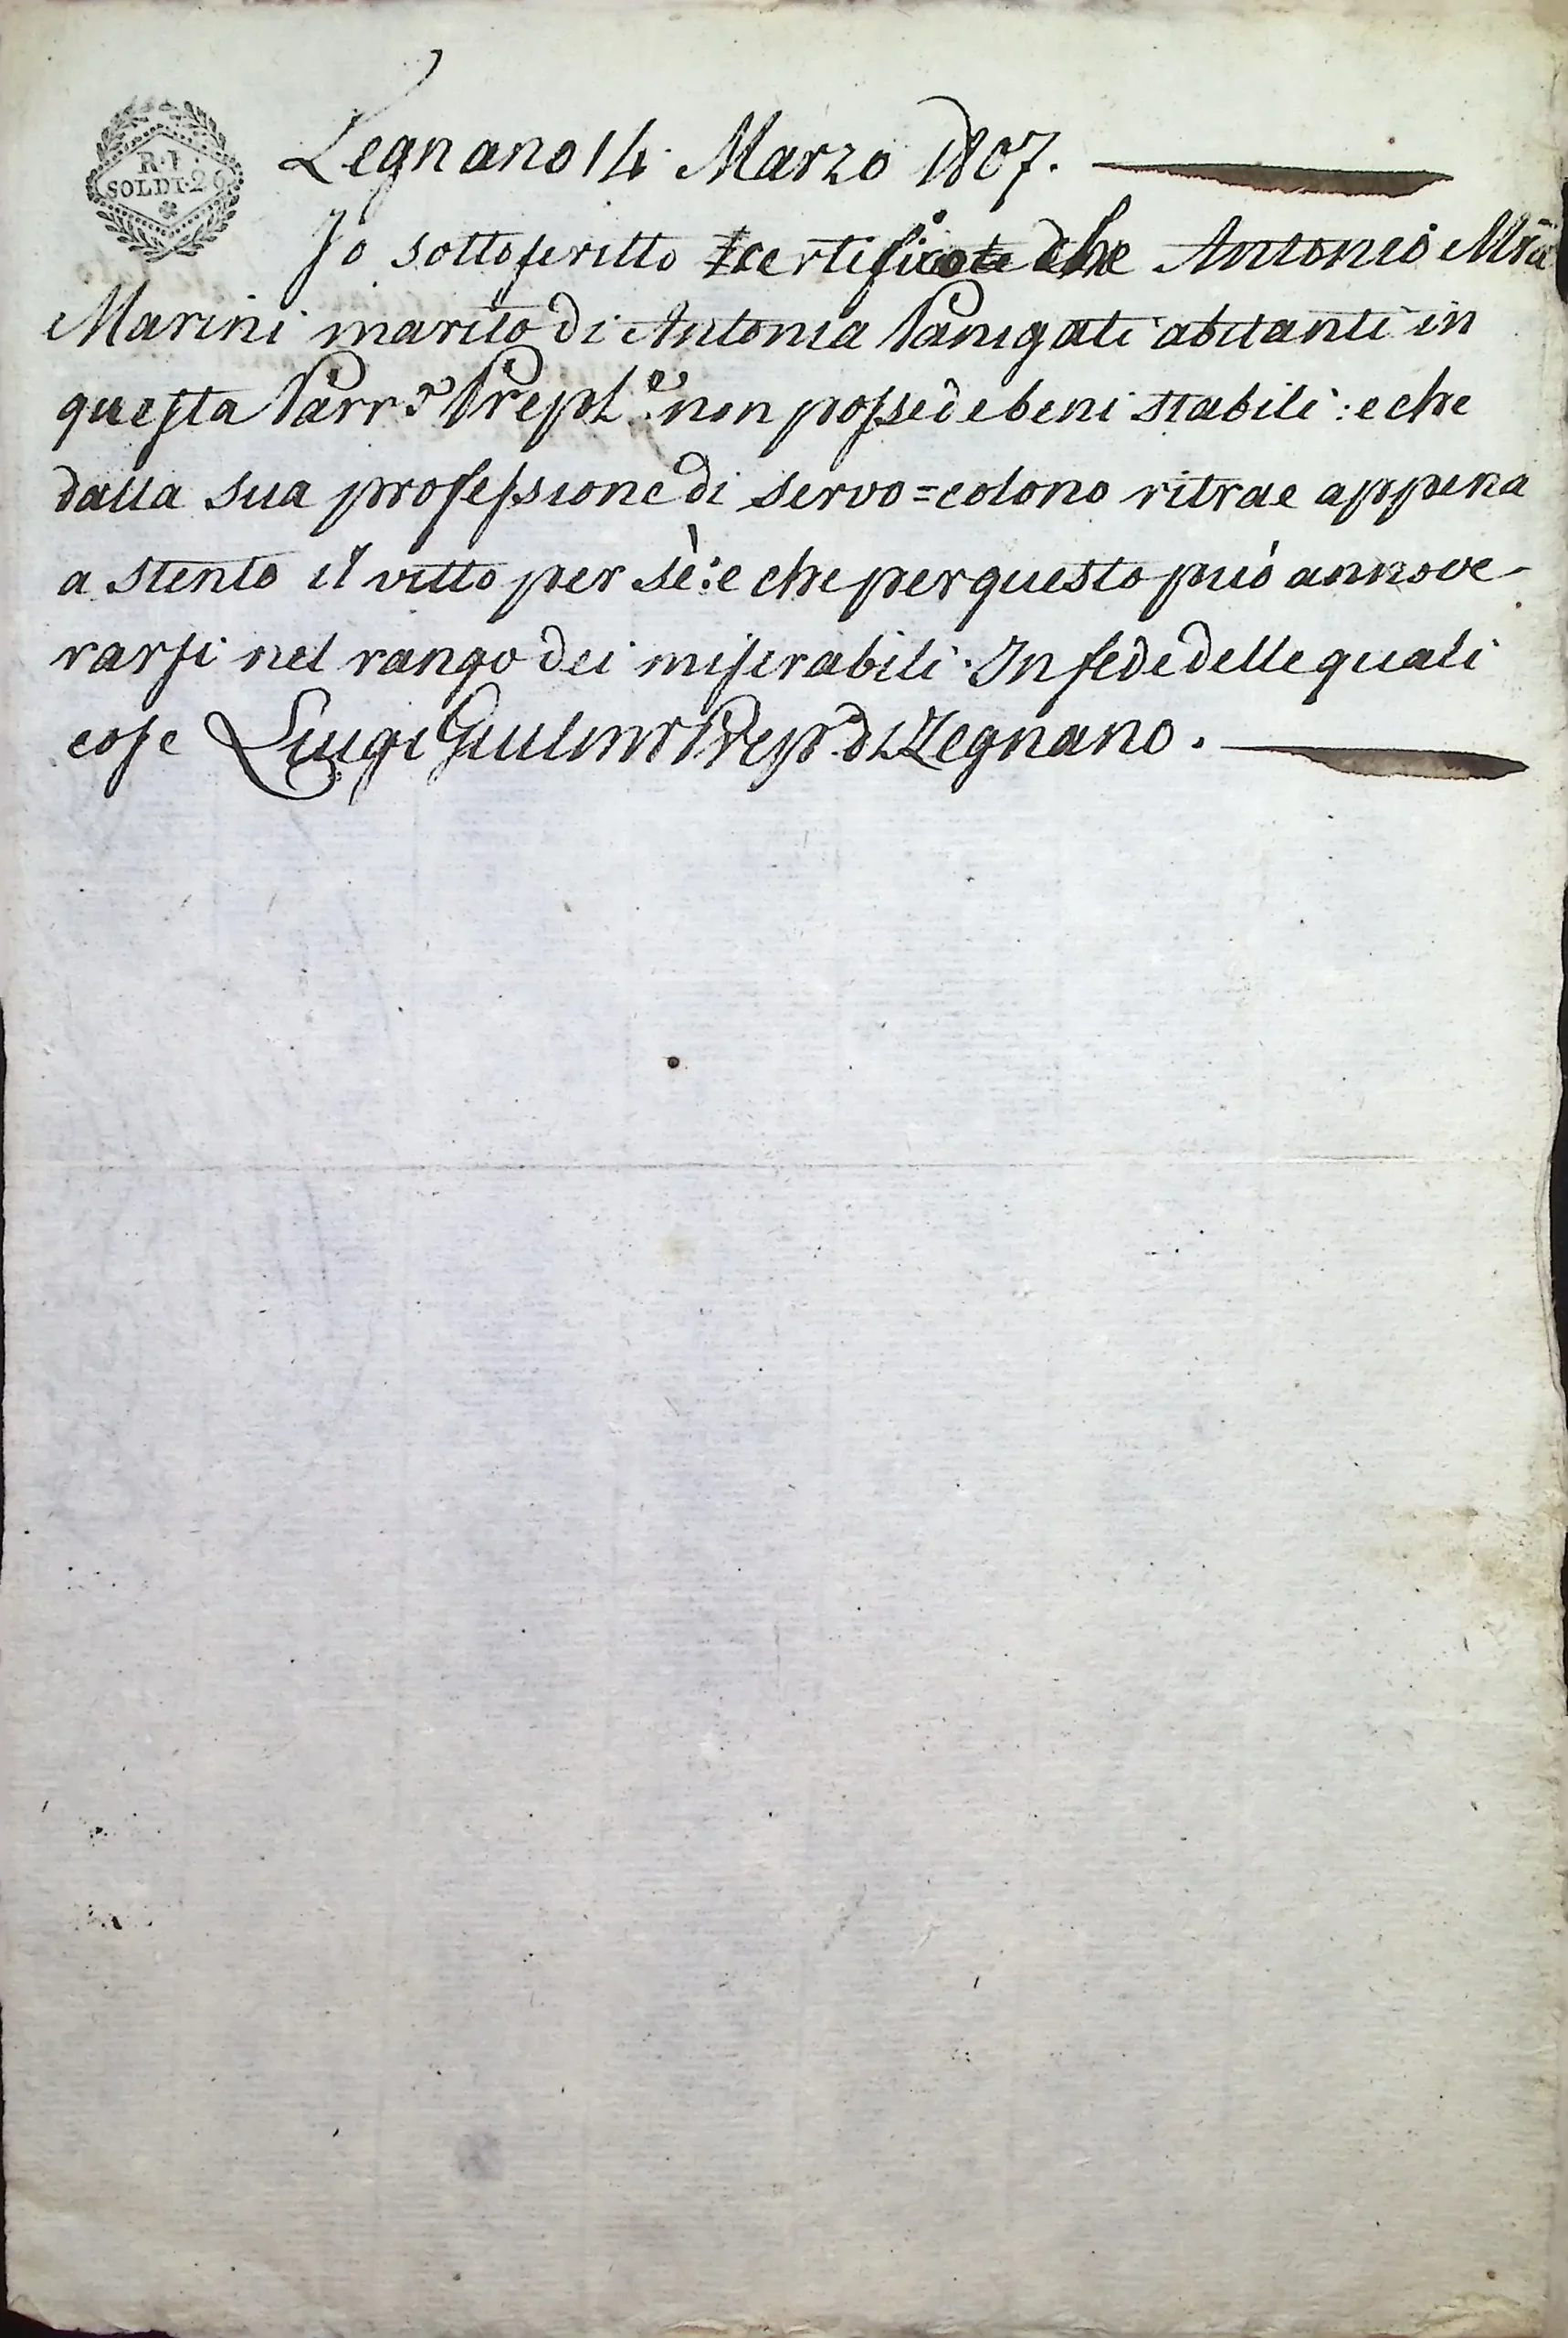 R. I.
SOLDI. 20
Legnano 14 Marzo 1807.
Io sottoscritto certifico che Antonio Mria
Marini marito di Antonia Panigati abitanti in
questa Parr.ª Prep.le non possiede beni stabili: e che
dalla sua professione di servo=colono ritrae appena
a stento il vitto per sè: e che per questo può annove-
rarsi nel rango dei miserabili. In fede delle quali
cose Luigi Prep.º di Legnano.